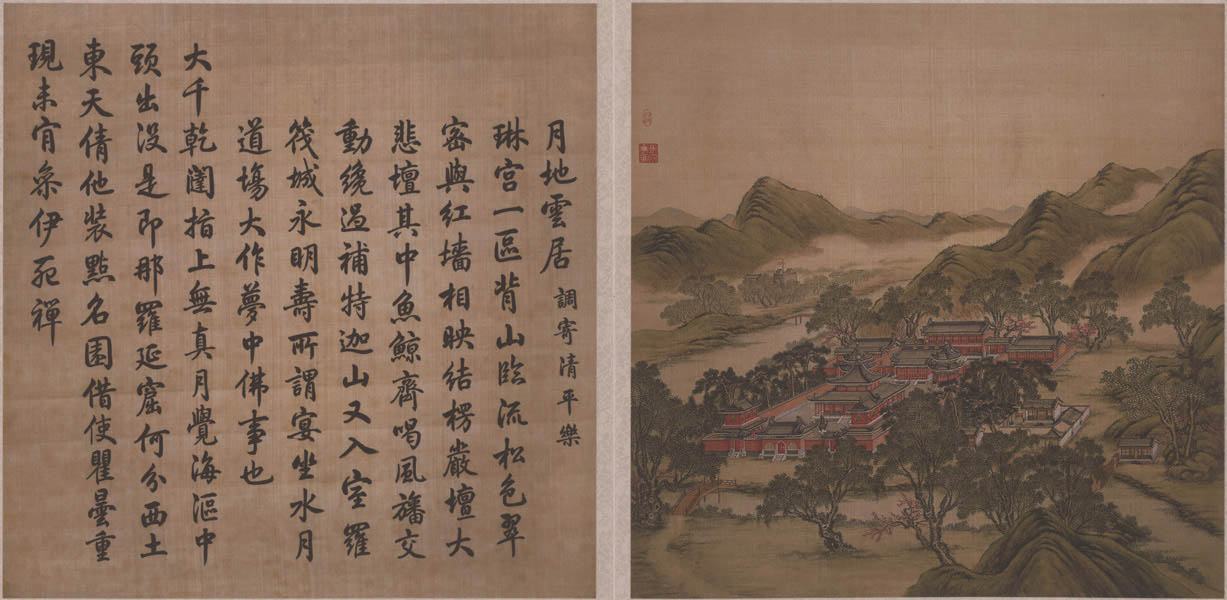 月地雲居 調寄清平樂
琳宮一區背山臨流松色翠
密與紅墻相映結楞嚴壇大
悲壇其中魚鯨齊喝風旛交
動纔過補特迦山又入室羅
筏城永明壽所謂宴坐水月
道塲大作夢中佛事也
大千乾闥指上無真月覺海漚中
頭出没是即那羅延窟何分西土
東天倩他裝點名園借使瞿曇重
現未肎叅伊死禪